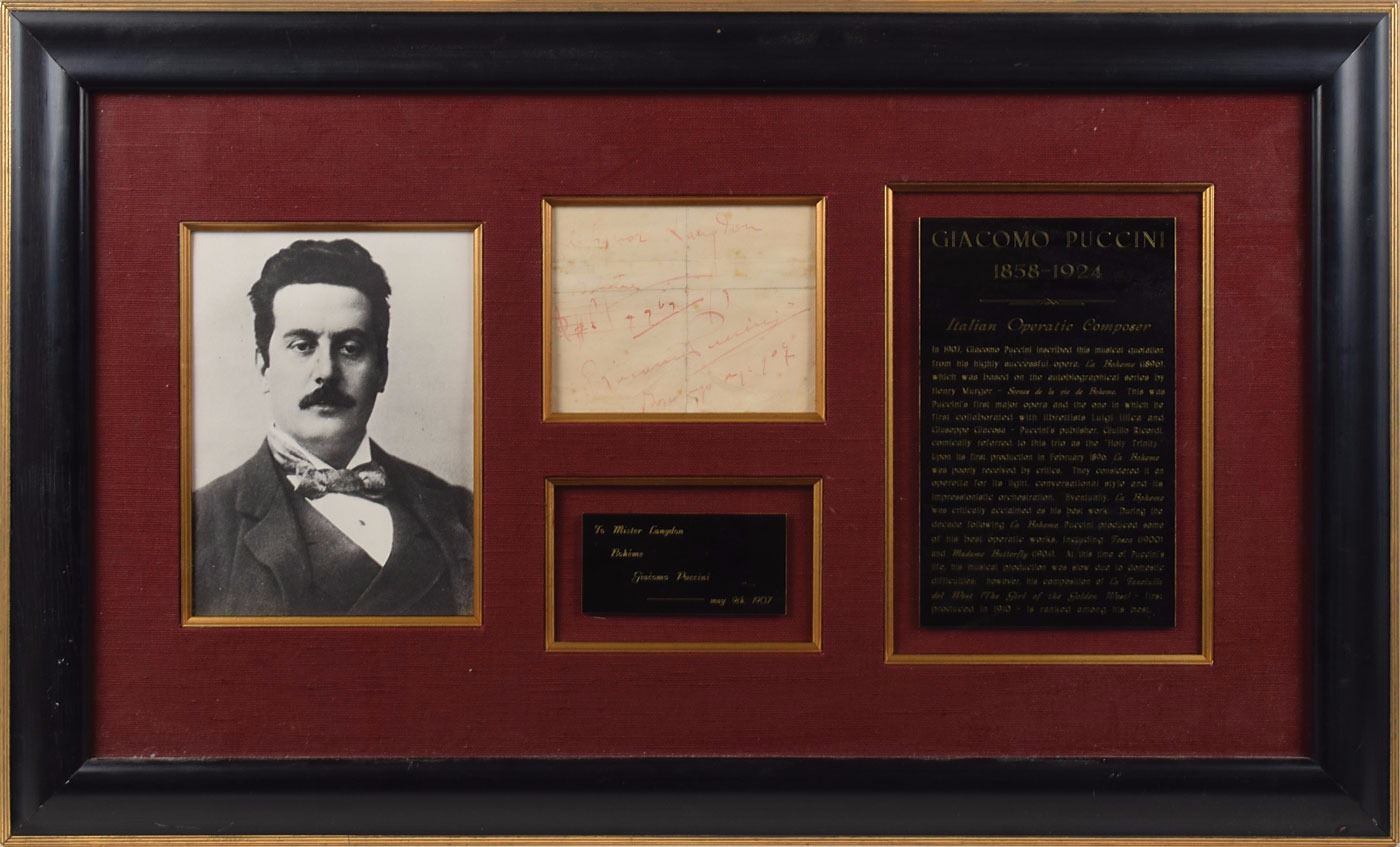 Langdon
Giacomo Puccini
To Mister Langdon
Bohéme
Giacomo Puccini
may 9th, 1907
GIACOMO PUCCINI
1858-1924
Italian Operatic Composer
In 1907, Giacomo Puccini inscribed this musical quotation
from his highly successful opera, La Boheme (1896),
which was based on the autobiographical series by
Henry Murger - Scenes de la vie de Boheme. This was
Puccini's first major opera and the one in which he
first collaborated with librettists Luigi Illica and
Giuseppe Giacosa - Puccini's publisher, Giulio Ricordi,
comically referred to this trio as the "Holy Trinity."
Upon its first production in February 1896, La Boheme
was poorly received by critics. They considered it an
operetta for its light, conversational style and its
impressionistic orchestration. Eventually, La Boheme
was critically acclaimed as his best work. During the
decade following La Boheme Puccini produced some
of his best operatic works, including Tosca (1900)
and Madame Butterfly (1904). At this time of Puccini's
life, his musical production was slow due to domestic
difficulties; however, his composition of La Fanciulla
del West (The Girl of the Golden West) - first
produced in 1910 - is ranked among his best.